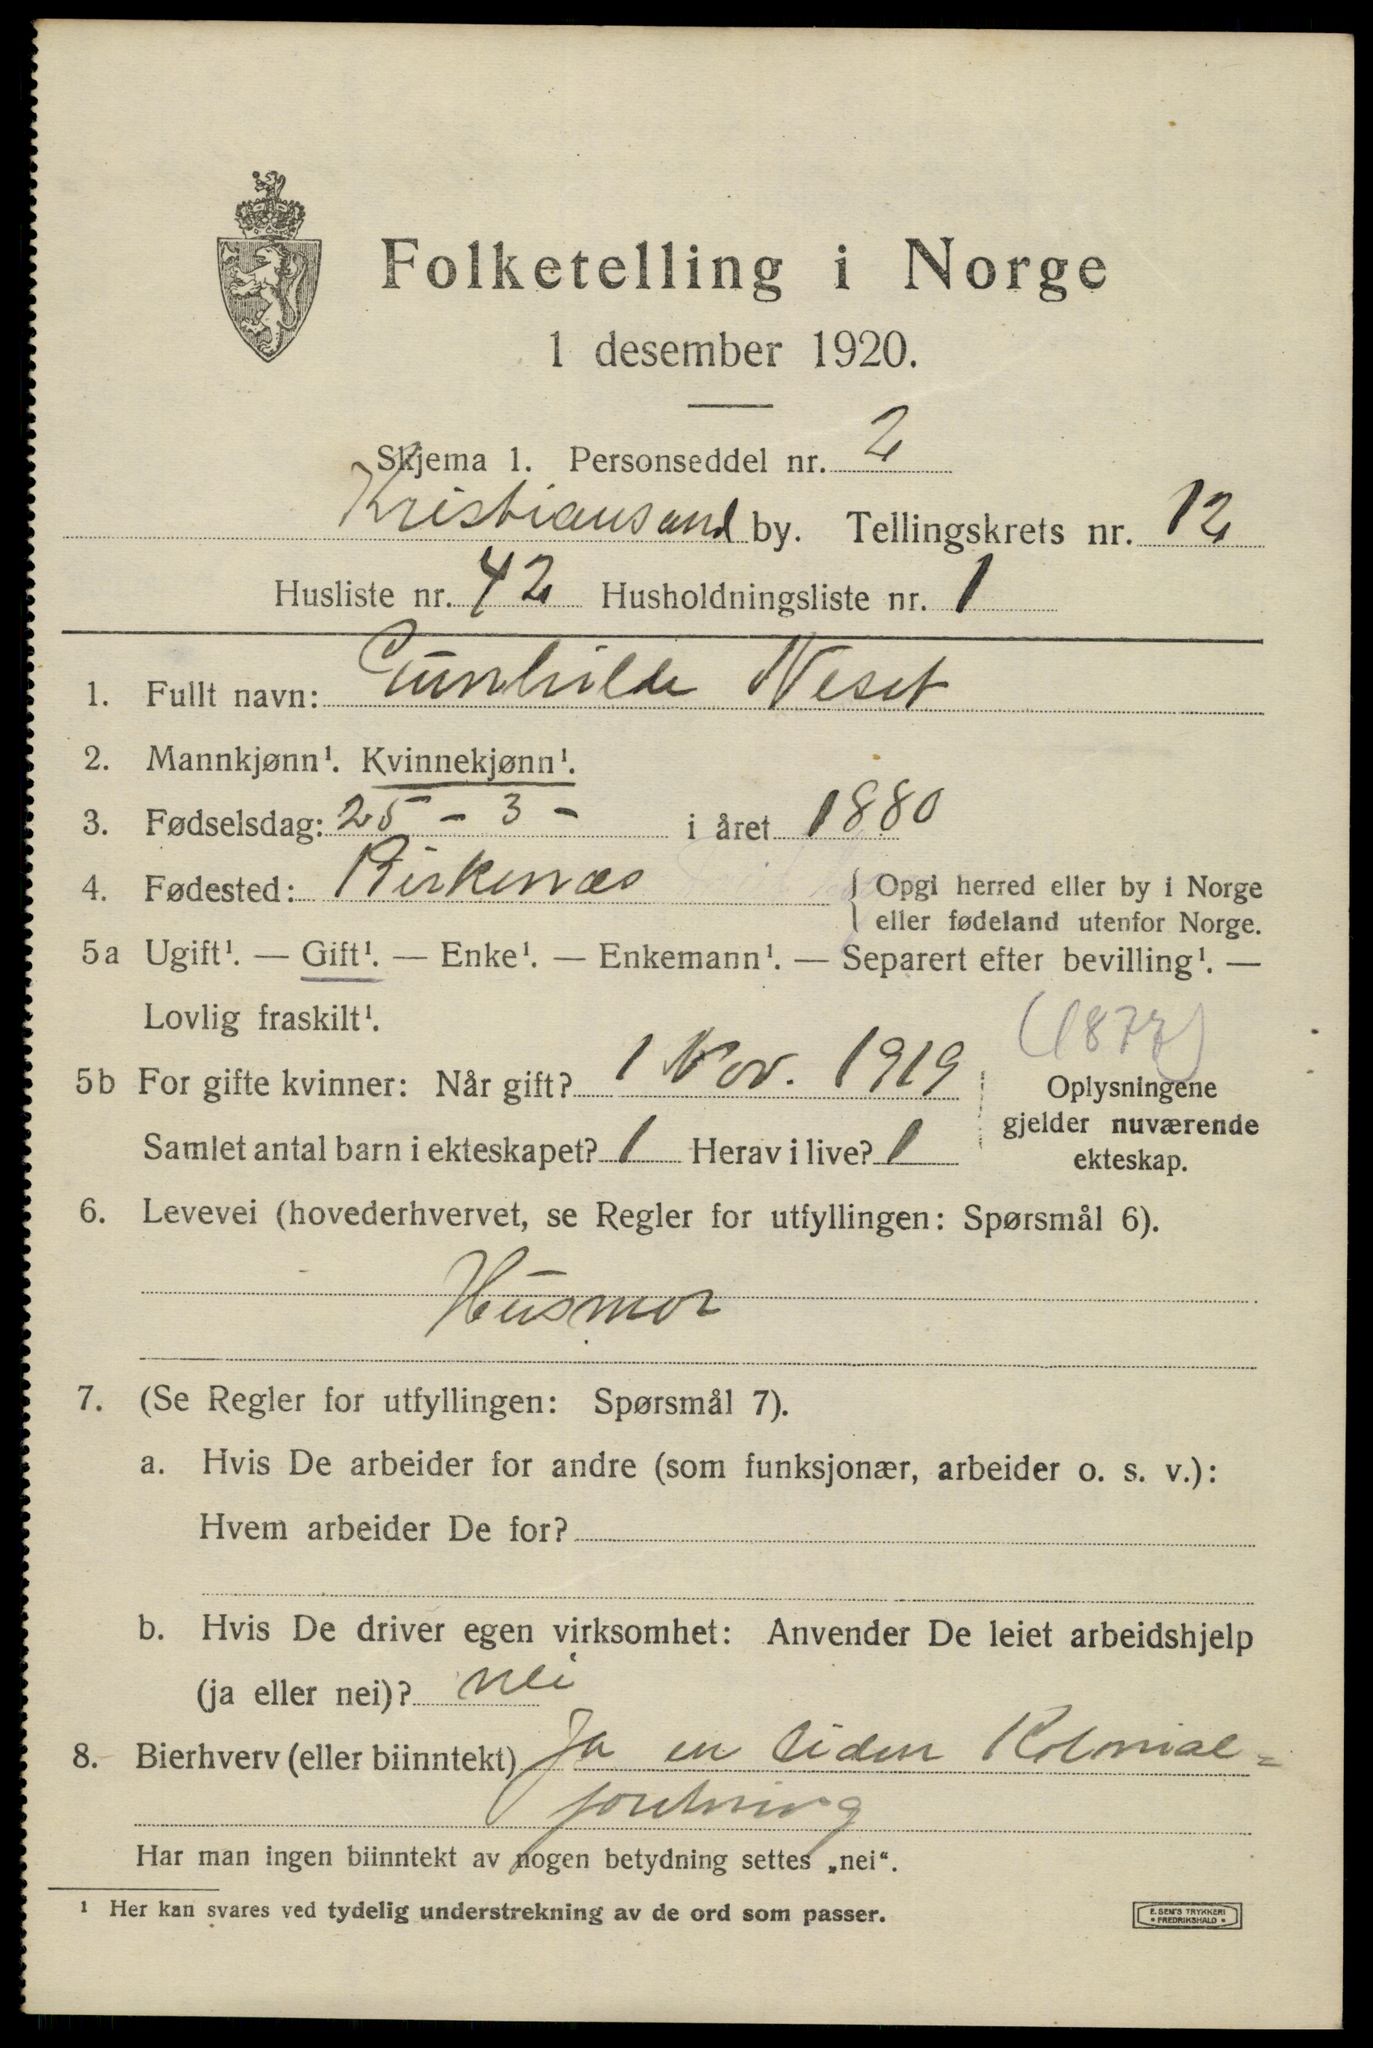 Folketelling i Norge
1 desember 1920.
Skjema 1. Personseddel nr. 2
Kristiansand by. Tellingskrets nr. 12
Husliste nr. 42 Husholdningsliste nr. 1
1. Fullt navn: Gunhilde Neset
2. Mannkjønn¹. Kvinnekjønn¹.
3. Fødselsdag: 25 - 3 - i året 1880
4. Fødested: Birkenæs { Opgi herred eller by i Norge
eller fødeland utenfor Norge.
5a Ugift¹. — Gift¹. — Enke¹. — Enkemann¹. — Separert efter bevilling¹. —
Lovlig fraskilt¹.
(1877)
5b For gifte kvinner: Når gift? 1 Nov. 1919 Oplysningene
gjelder nuværende
Samlet antal barn i ekteskapet? 1 Herav i live? 1 ekteskap.
6. Levevei (hovederhvervet, se Regler for utfyllingen: Spørsmål 6).
Husmor
7. (Se Regler for utfyllingen: Spørsmål 7).
a. Hvis De arbeider for andre (som funksjonær, arbeider o. s. v.):
Hvem arbeider De for?
b. Hvis De driver egen virksomhet: Anvender De leiet arbeidshjelp
(ja eller nei)? nei
8. Bierhverv (eller biinntekt) Ja en liden Kolonial=
foretning
Har man ingen biinntekt av nogen betydning settes „nei“.
¹ Her kan svares ved tydelig understrekning av de ord som passer.
E. SEM'S TRYKKERI
• FREDRIKSHALD •